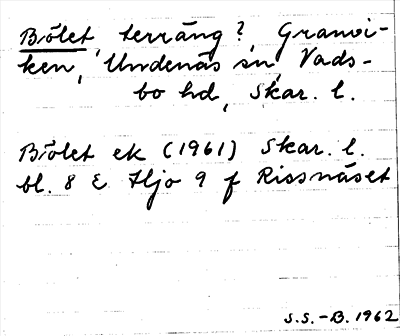 Bölet, terräng?, Granvi-
ken, Undenäs sn, Vads-
bo hd, Skar. l.
Bölet ek (1961) Skar. l.
bl. 8 E Hjo 9 f Rissnäset
S.S.-B. 1962